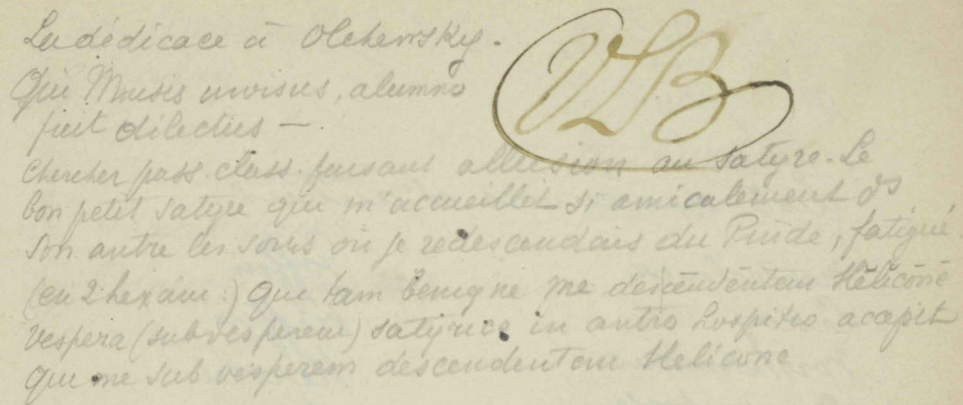 La dédicace à Olchewsky.
VLB
Qui Musis invisus, alumno
fuit dilectus —
Chercher pass. class. faisant allusion au satyre. Le
bon petit satyre qui m'accueillit si amicalement ds
son antre les soirs où je redescendais du Pinde, fatigué.
(en 2 hexam:) Qui tam benigne me descendentem Helicone
Vespera (sub vesperem) satyrice in antro hospitio acepit
Qui me sub vesperem descendentem Helicone